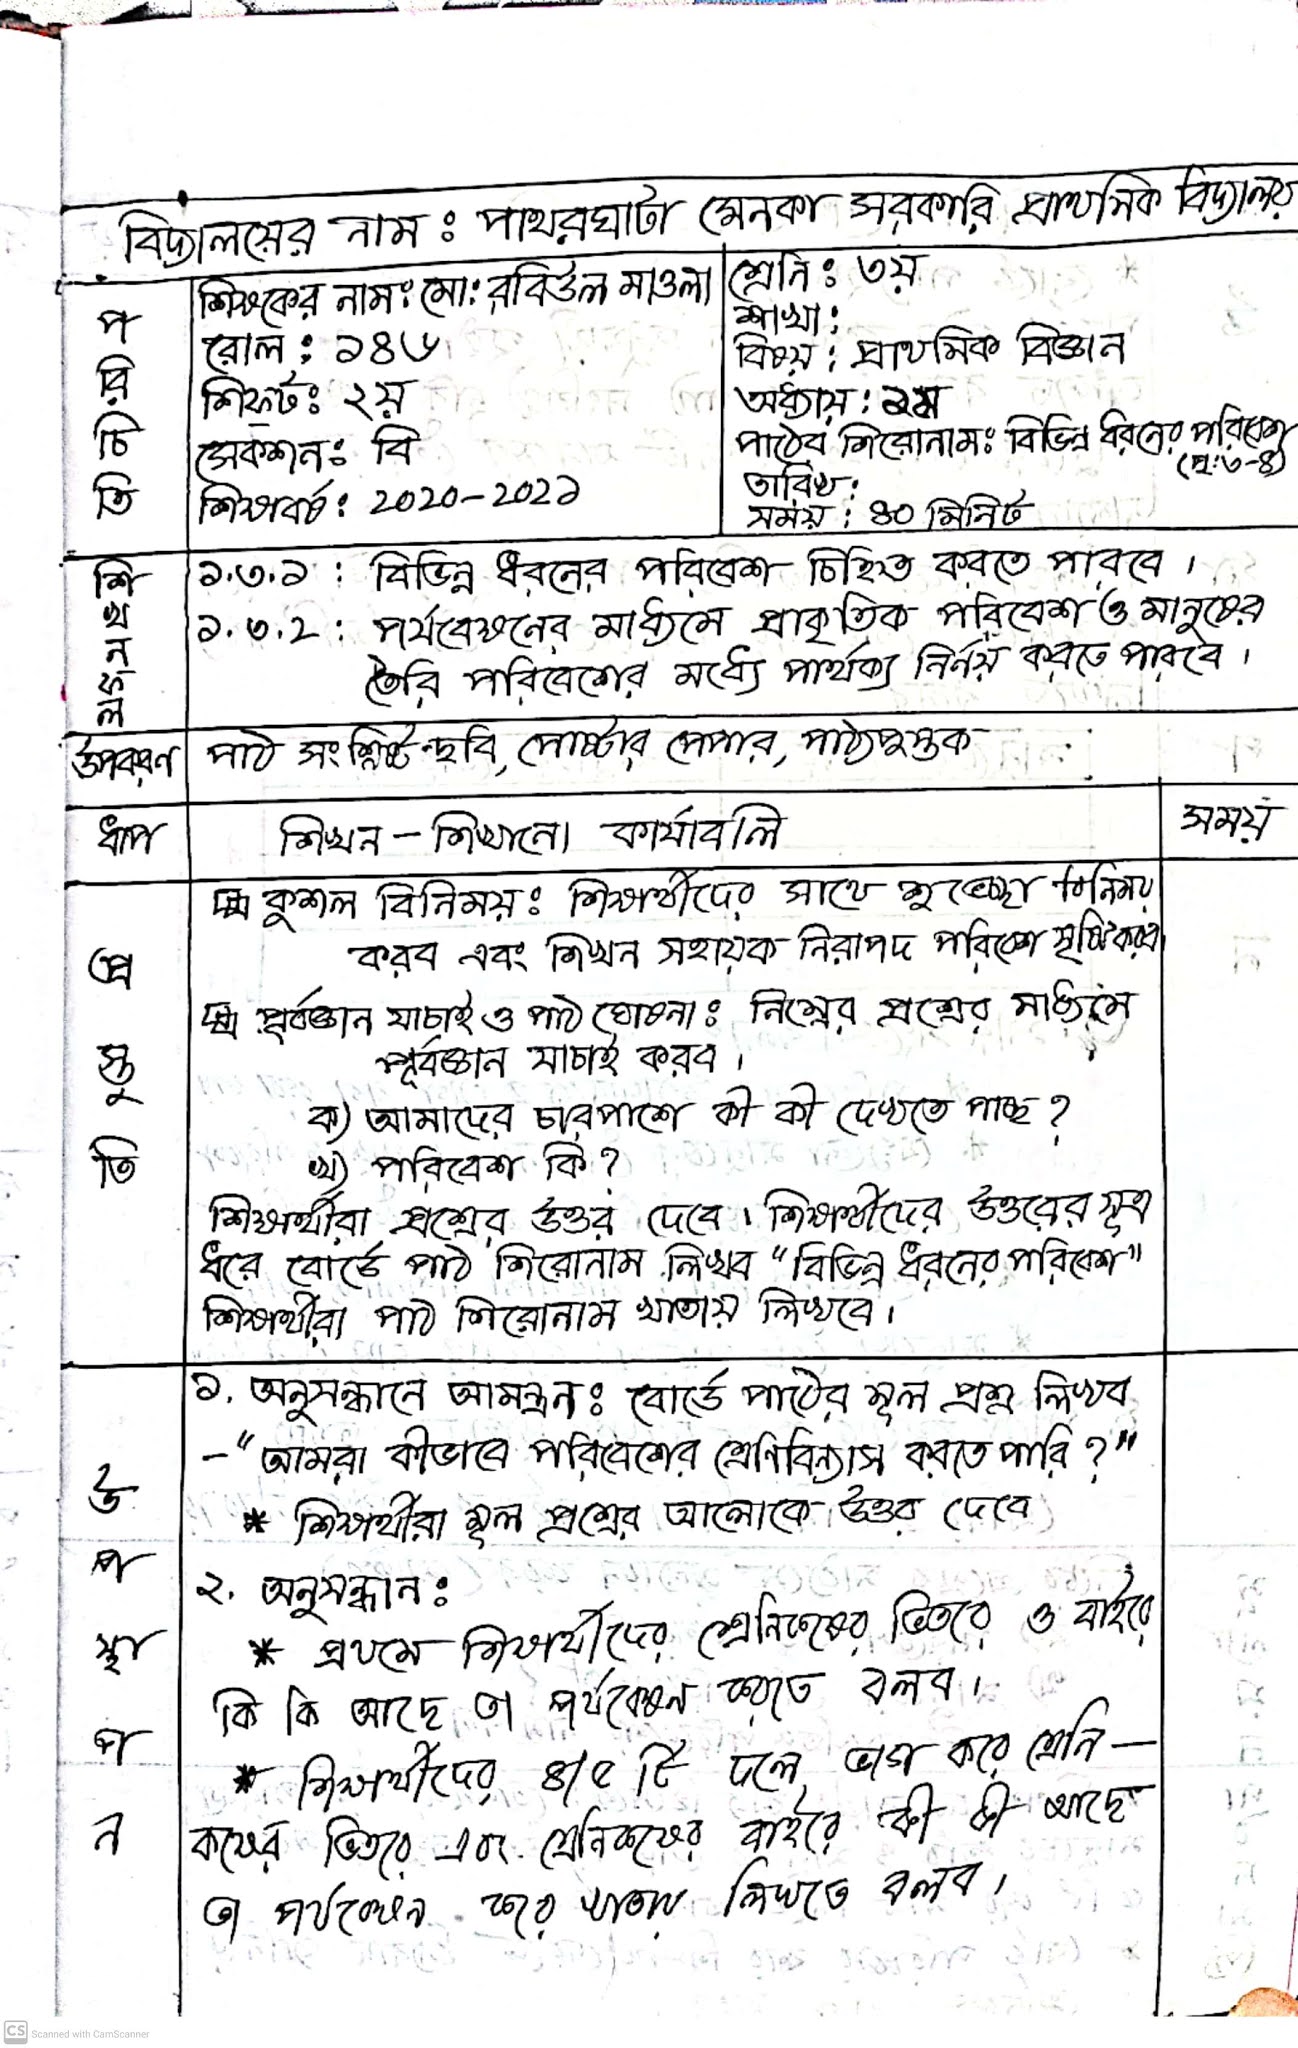 বিদ্যালয়ের নাম : পাথরঘাটা মেনকা সরকারি প্রাথমিক বিদ্যালয়
পরিচিতি
শিক্ষকের নাম: মো: রবিউল মাওলা
রোল : ১৪৬
শিফট: ২য়
সেকশন: বি
শিক্ষাবর্ষ : ২০২০-২০২১
শ্রেনি : ৩য়
শাখা :
বিষয় : প্রাথমিক বিজ্ঞান
অধ্যায় : ১ম
পাঠের শিরোনাম: বিভিন্ন ধরনের পরিবেশ
(পৃ:৩-৪)
তারিখ:
সময় : ৪০ মিনিট
শিখনফল
১.৩.১ : বিভিন্ন ধরনের পরিবেশ চিহ্নিত করতে পারবে ।
১.৩.২ : পর্যবেক্ষনের মাধ্যমে প্রাকৃতিক পরিবেশ ও মানুষের
তৈরি পরিবেশের মধ্যে পার্থক্য নির্নয় করতে পারবে ।
উপকরণ পাঠ সংশ্লিষ্ট ছবি, পোষ্টার পেপার, পাঠ্যপুস্তক
ধাপ শিখন - শিখানো কার্যাবলি সময়
প্রস্তুতি
কুশল বিনিময় : শিক্ষার্থীদের সাথে শুভেচ্ছা বিনিময়
করব এবং শিখন সহায়ক নিরাপদ পরিবেশ সৃষ্টি করব।
পূর্বজ্ঞান যাচাই ও পাঠ ঘোষনা : নিম্নের প্রশ্নের মাধ্যমে
পূর্বজ্ঞান যাচাই করব ।
ক) আমাদের চারপাশে কী কী দেখতে পাচ্ছ ?
খ) পরিবেশ কি ?
শিক্ষার্থীরা প্রশ্নের উত্তর দেবে । শিক্ষার্থীদের উত্তরের সূত্র
ধরে বোর্ডে পাঠ শিরোনাম লিখব "বিভিন্ন ধরনের পরিবেশ"
শিক্ষার্থীরা পাঠ শিরোনাম খাতায় লিখবে ।
উপস্থাপন
১. অনুসন্ধানে আমন্ত্রন : বোর্ডে পাঠের মূল প্রশ্ন লিখব
- "আমরা কীভাবে পরিবেশের শ্রেণিবিন্যাস করতে পারি ?"
* শিক্ষার্থীরা মূল প্রশ্নের আলোকে উত্তর দেবে
২. অনুসন্ধান :
* প্রথমে শিক্ষার্থীদের শ্রেনিকক্ষের ভিতরে ও বাইরে
কি কি আছে তা পর্যবেক্ষন করতে বলব ।
* শিক্ষার্থীদের ৪/৫ টি দলে ভাগ করে শ্রেনি -
কক্ষের ভিতরে এবং শ্রেনিকক্ষের বাইরে কী কী আছে
তা পর্যবেক্ষন করে খাতায় লিখতে বলব ।
CS Scanned with CamScanner